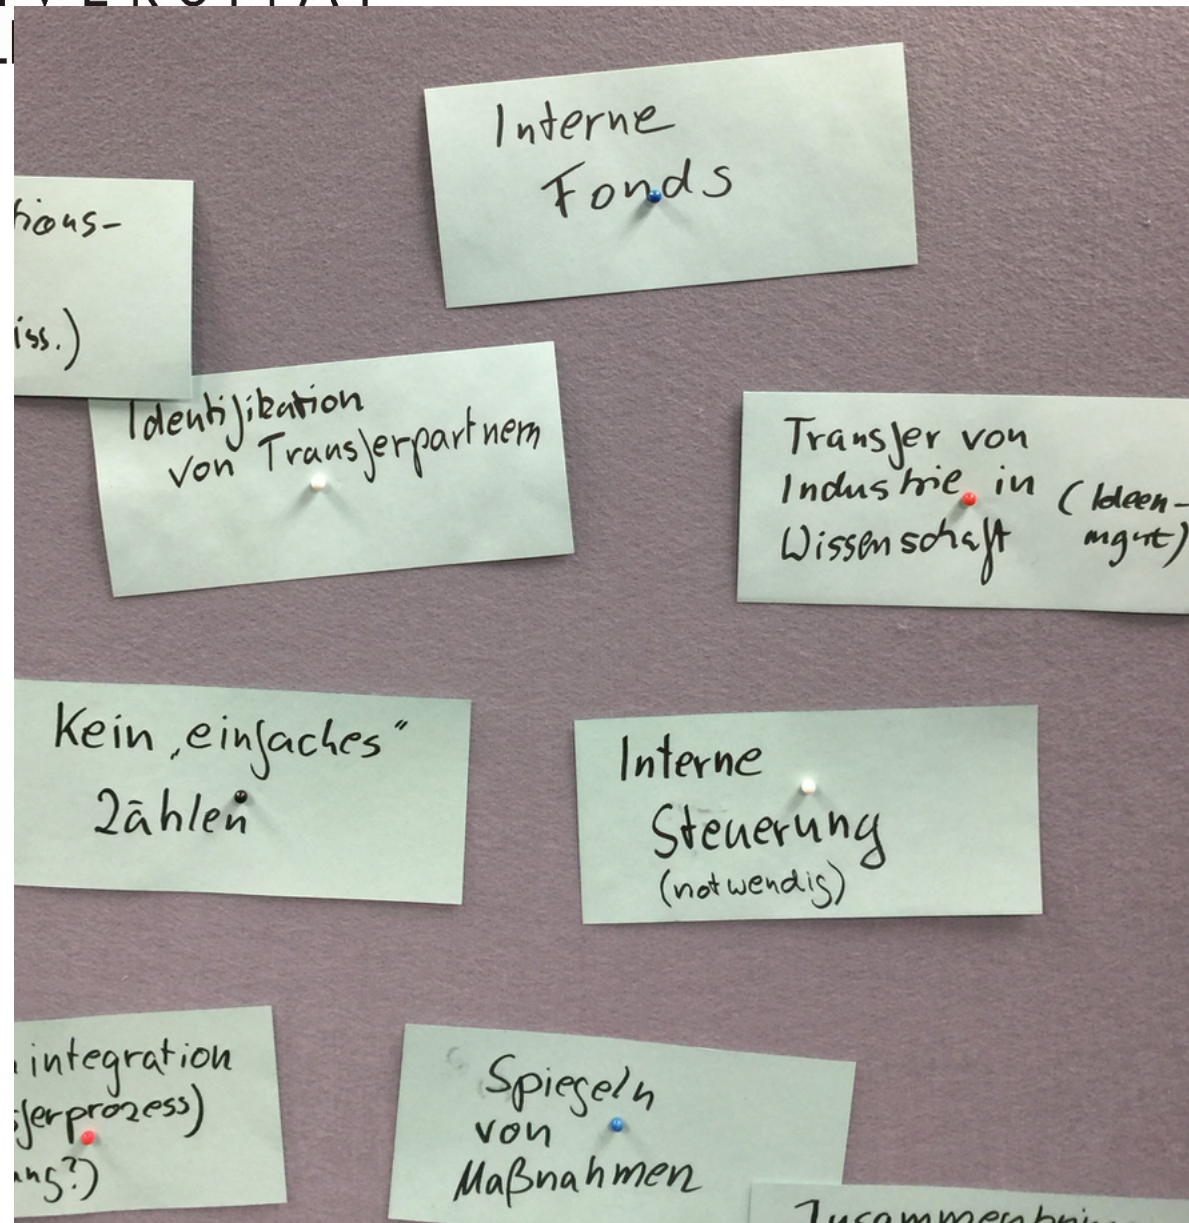 Interne
Fonds
iss.)
Identifikation
von Transferpartnern
Transfer von
Industrie in (Ideen-
Wissenschaft mgmt)
Kein „einfaches“
Zählen
Interne
Steuerung
(notwendig)
integration
sferprozess)
Spiegeln
von
Maßnahmen